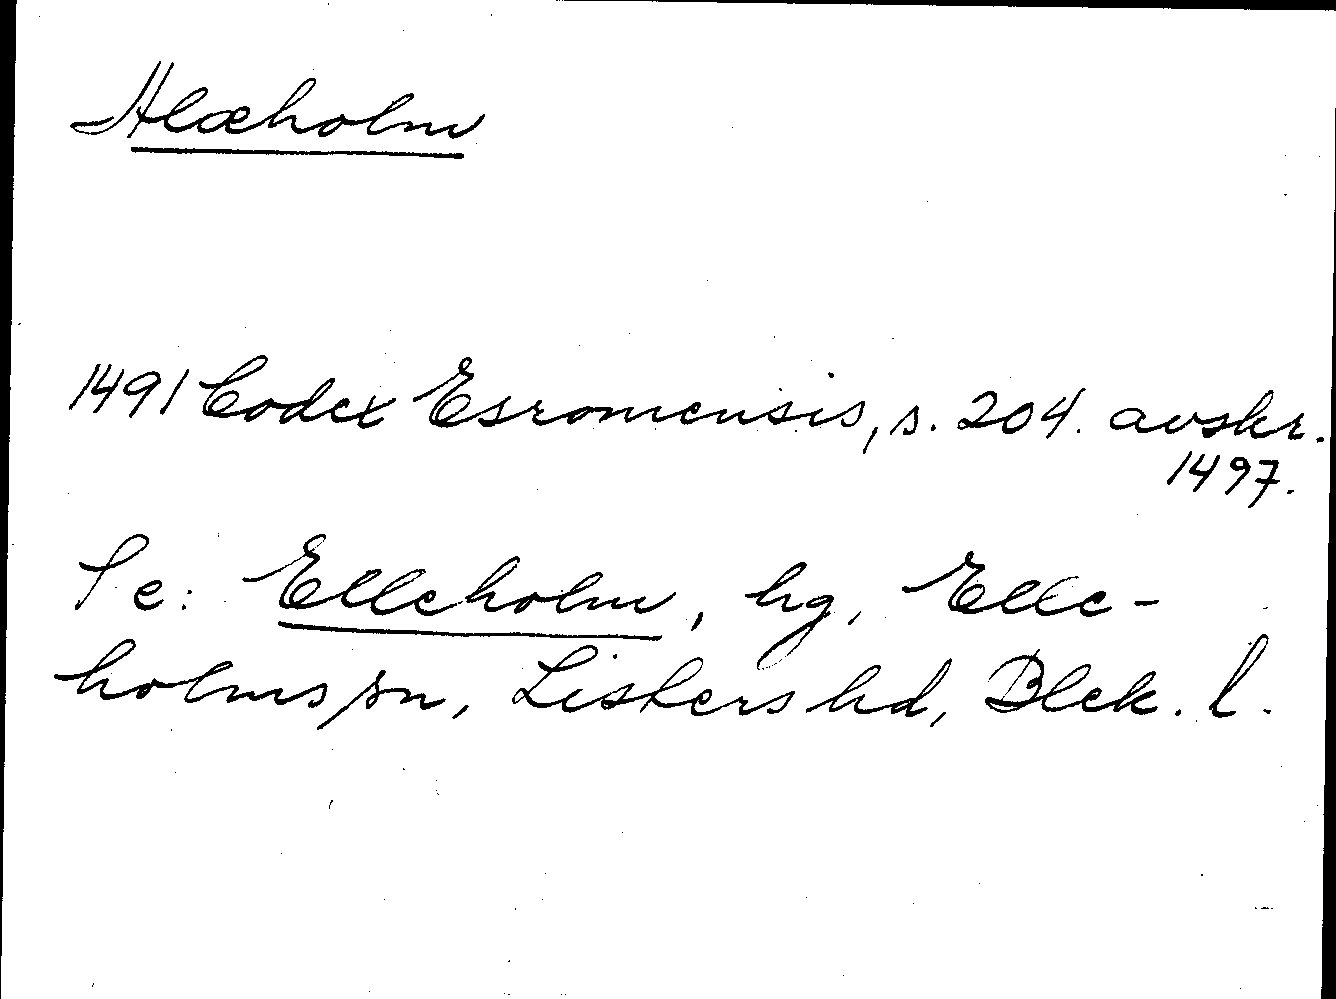 Alæholm
1491 Codex Esromensis, s. 204. avskr.
1497.
Se: Elleholm, hg, Elle-
holms sn, Listers hd, Blek. l.